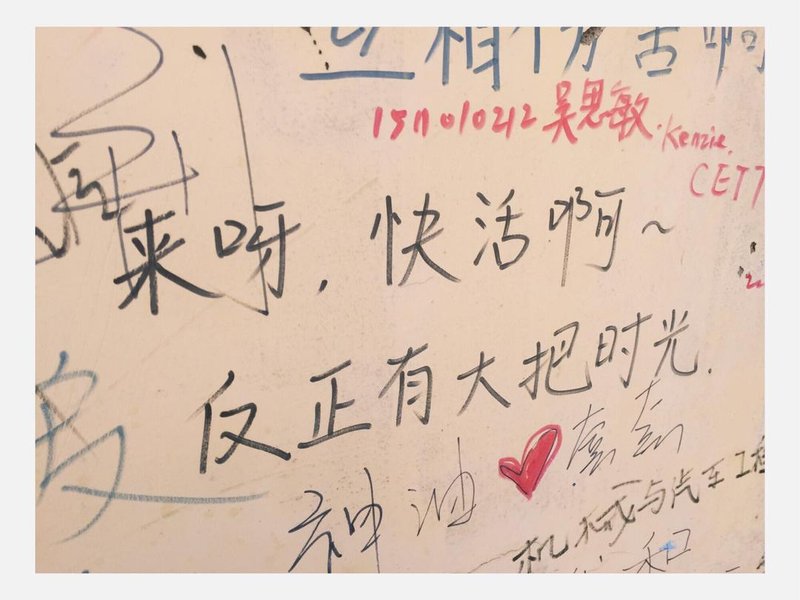 1511010212 吴思敏.
Kenzie.
来呀，快活啊~
反正有大把时光.
神油
机械与汽车工程
和